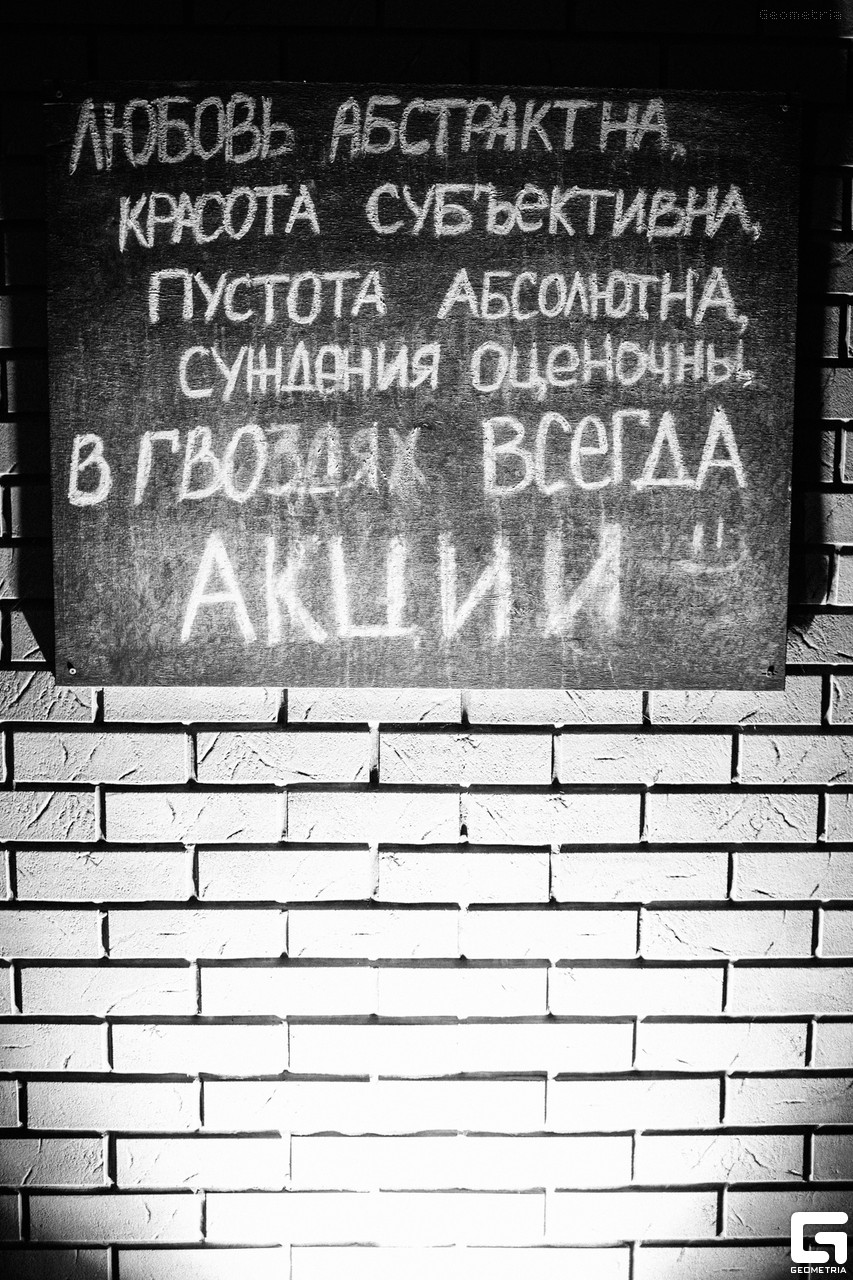 Geometria
ЛЮБОВЬ АБСТРАКТНА,
КРАСОТА СУБЪЕКТИВНА,
ПУСТОТА АБСОЛЮТНА,
СУЖДЕНИЯ ОЦЕНОЧНЫ,
В ГВОЗДЯХ ВСЕГДА
АКЦИИ
GEOMETRIA